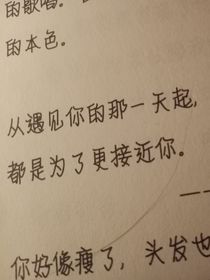 的歌唱。
的本色。
从遇见你的那一天起,
都是为了更接近你。
——
你好像瘦了，头发也